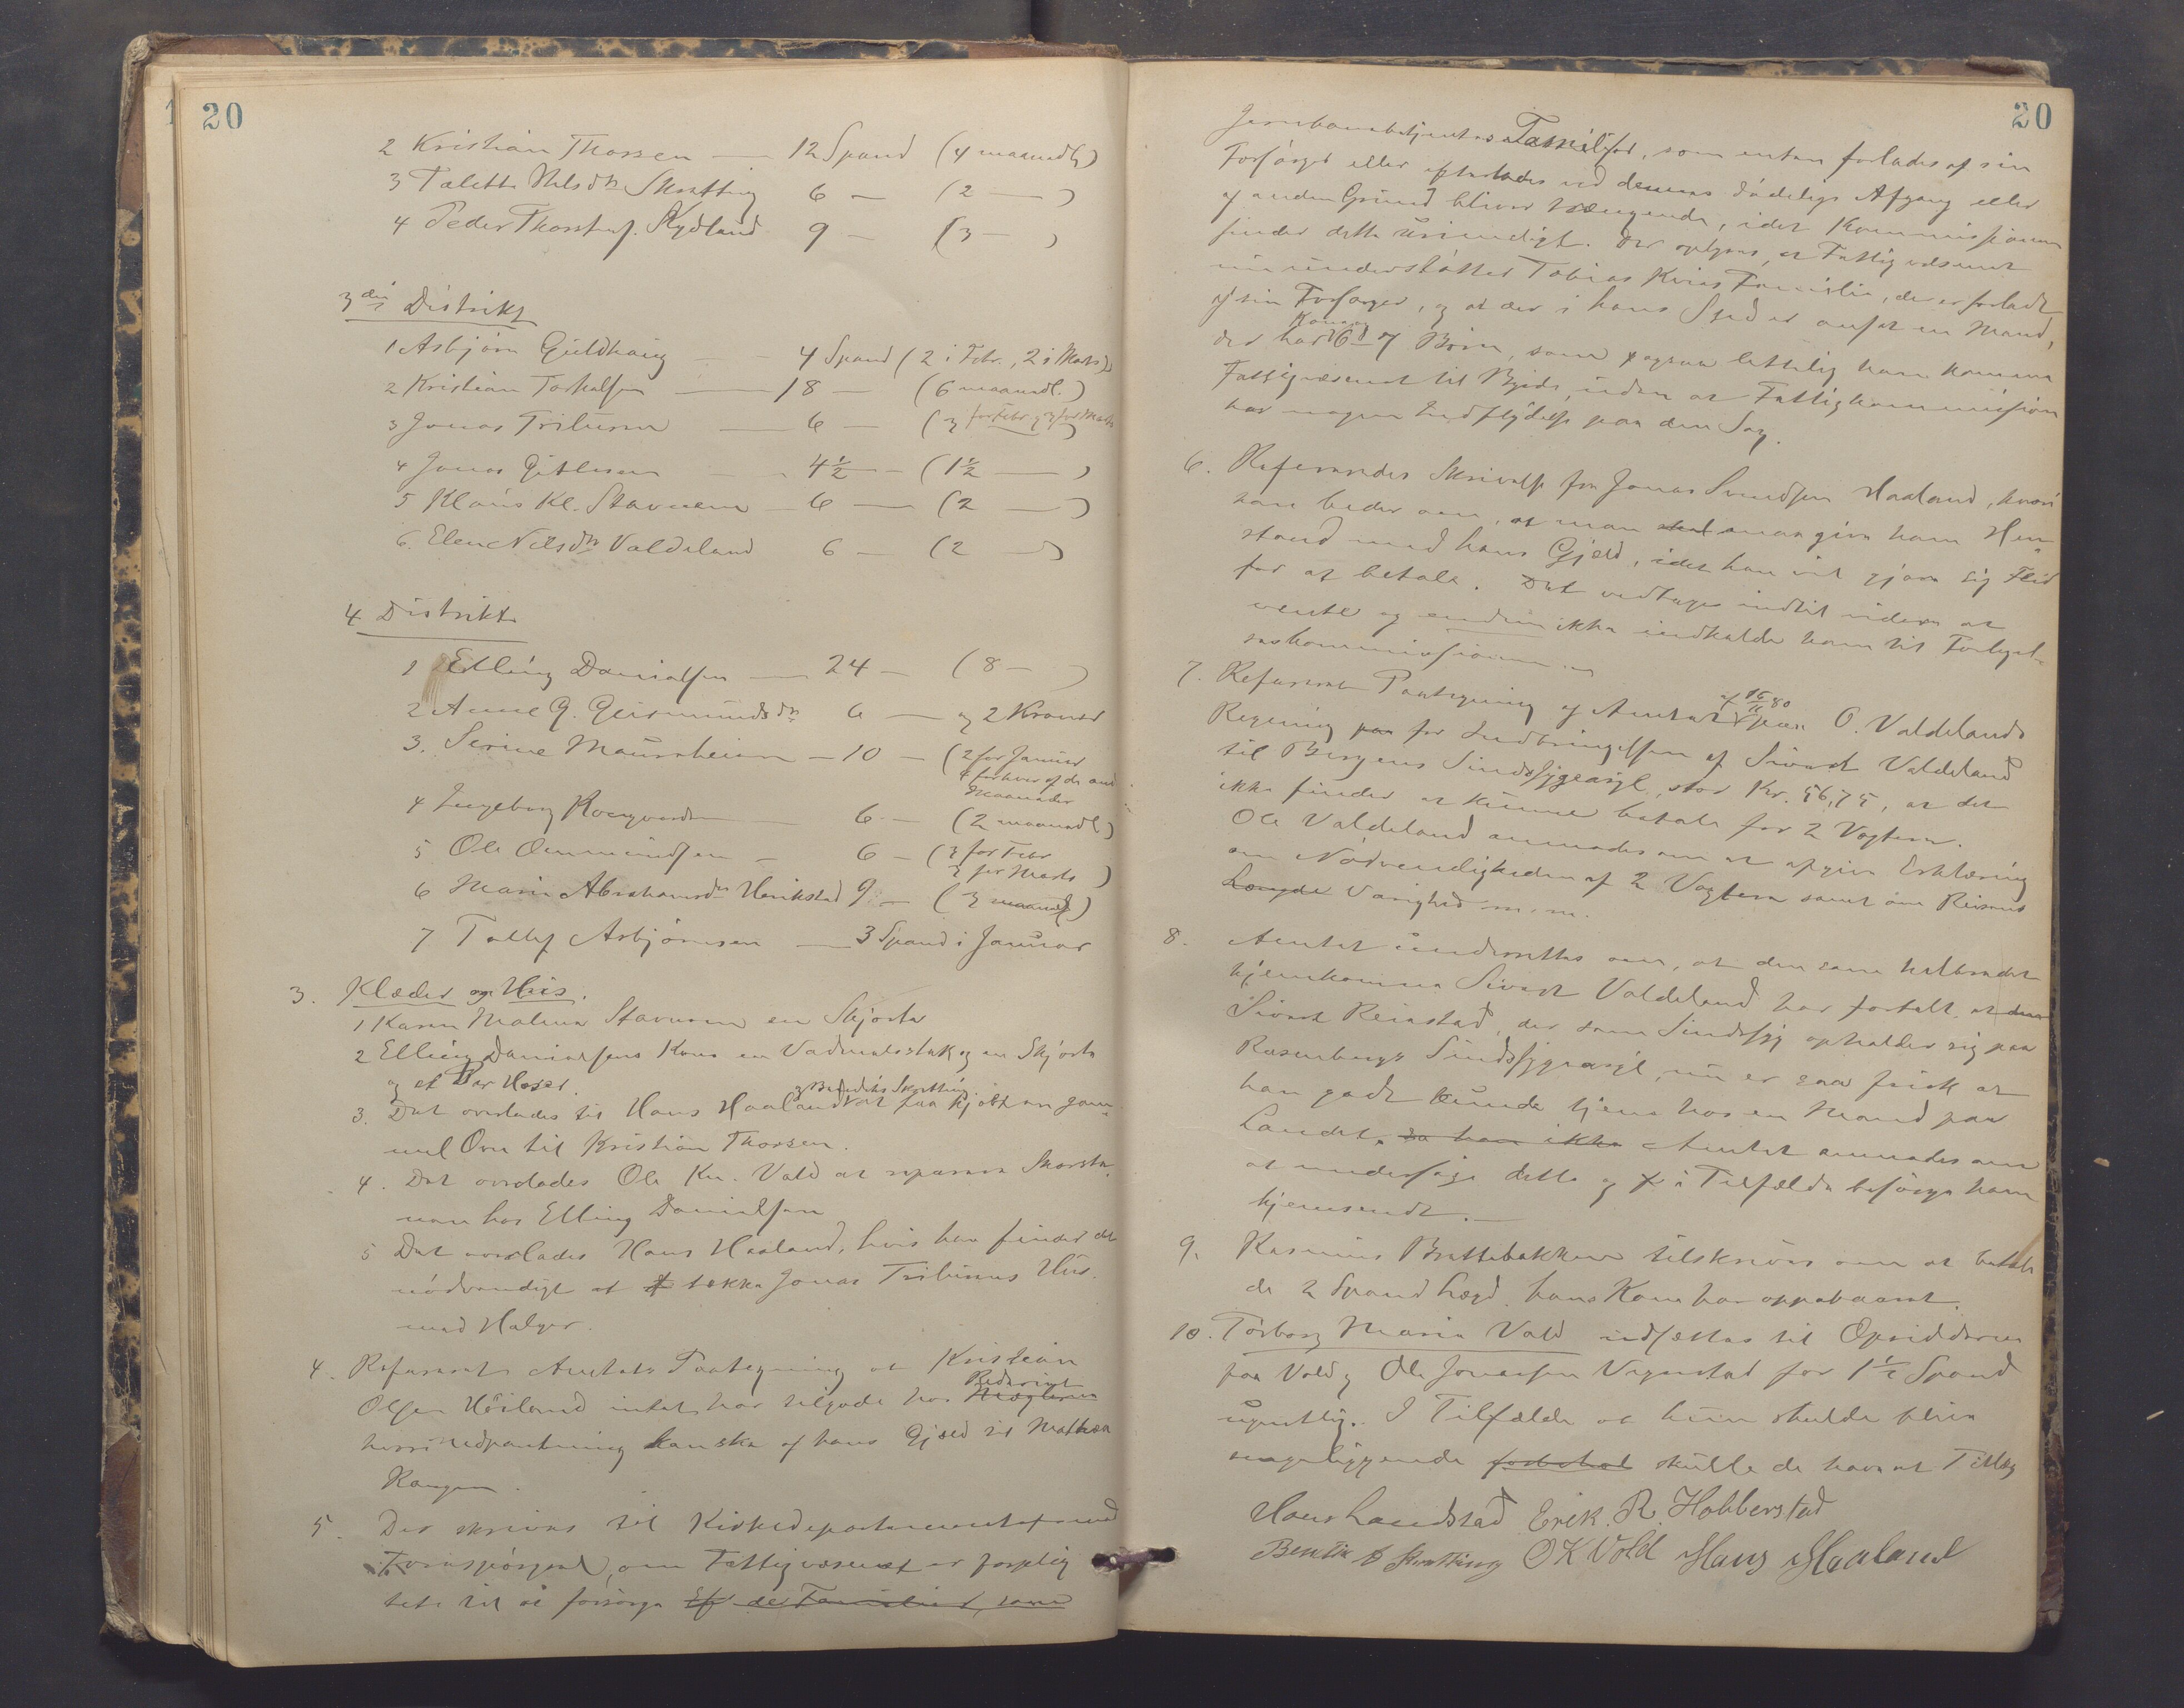 20
2 Kristian Thorsen — 12 Spand (4 maanedl)
3 Talette Nelsdtr Skratting 6 — (2 — )
4 Peder Thorstens. Kydland 9 — (3 — )
3die Distrikt
1 Asbjørn Guldhaug — 4 Spand (2 i Febr., 2 i Marts)
2 Kristian Torkelsen — 18 — (6 maanedl.)
3 Jonas Triburn — 6 — (3 for Febr. 3 for Marts)
4 Jonas Gitlesen — 4½ — (1½ — )
5 Klaus Kl. Stavnem — 6 — (2 — )
6. Elen Nilsdtr Valdeland 6 — (2 — )
4 Distrikt
1 Elling Danielsen — 24 — (8 — )
2 Anne G. Geirmundsdtr 6 — og 2 Kroner
3. Serine Maurheim — 10 — (2 for Januar
4 for hver af de and
Maaneder
4 Ingeborg — 6 — (2 maanedl)
5 Ole Ommundsen — 6 — (3 for Febr
3 for Marts )
6 Marie Abrahamsdtr Henikstad 9 — (3 maanedl)
7 Tollef Asbjørnsen — 3 Spand i Januar
3. Klæder og Hus.
1 Karen Malene Stavnem en Skjorte
2 Elling Danielsens Kone en Vadmelsstak og en Skjorte
og et Par Hoser.
og Bendik Skratting
3. Det overlades til Hans Haaland at faa kjøbt en gam-
mel Ovn til Kristian Thorsen.
4. Det overlades Ole Kn. Vold at reparere Skorste-
nen hos Elling Danielsen
5 Det overlades Hans Haaland, hvis han finder det
nødvendigt at tække Jonas Triburns Hus
med Halm.
4. Refereret Amtets Paategning at Kristian
Olsen Høiland intet har tilgode hos
Nedpantning kan ske af hans Gjæld til
5. Der skrives til Kirkedepartementet med
Forespørgsel, om Fattigvæsenet er forplig
tet til at forsørge de Familier, som
20
Jernbanebetjentes Familier, som enten forlades af sin
Forsørger eller efterlades ved dennes dødelige Afgang eller
af anden Grund bliver trængende, idet Kommissionen
finder dette urimeligt. Der oplyses, at Fattigvæsenet
nu understøtter Tobias Kvias Familie, der er forladt
af sin Forsørger, og at der i hans Sted er ansat en Mand,
Kone og
der har 6 à 7 Børn, som ogsaa lettelig kan komme
Fattigvæsenet til Byrde, uden at Fattigkommissionen
har nogen Indflydelse paa den Sag.
6. Refereredes Skrivelse fra Jonas Svendsen Haaland, hvori
han beder om, at man skal maa give ham Hen-
stand med hans Gjæld, idet han vil gjøre sig Flid
for at betale. Det vedtages indtil videre at
vente og endnu ikke indkalde ham til Forligel-
seskommissionen
7. Refereret Paategning af Amtet af 15/11 80 paa O. Valdelands
Regning paa for Indbringelsen af Sivert Valdeland
til Bergens Sindssygeasyl, stor Kr. 56,75, at det
ikke finder at kunne betale for 2 Vogtere.
Ole Valdeland anmodes om at afgive Erklæring
om Nødvendigheden af 2 Vogtere samt om Reisens
Længde Varighed m. m.
8. Amtet underrettes om, at den som helbredet
hjemkomne Sivert Valdeland har fortalt, at den
Sivert Reinstad, der som Sindssyg opholder sig paa
Rosenbergs Sindssygeasyl, nu er saa frisk at
han godt kunde tjene hos en Mand paa
Landet, da han ikke Amtet anmodes om
at undersøge dette og i Tilfælde besørge ham
hjemsendt. —
9. Rasmus Brattebakken tilskrives om at betale
de 2 Spand Lægd, hans Kone har oppebaaret.
10. Torborg Maria Vold indsættes til Opsidderne
paa Vold og Ole Jonassen Vigrestad for 1½ Spand
ugentlig. I Tilfælde at hun skulde blive
sengeliggende forbehol skulle de have et Tillæg
Hans Landstad Erik. R. Hobberstad
Bendik B Skratting O K Vold Hans Haaland